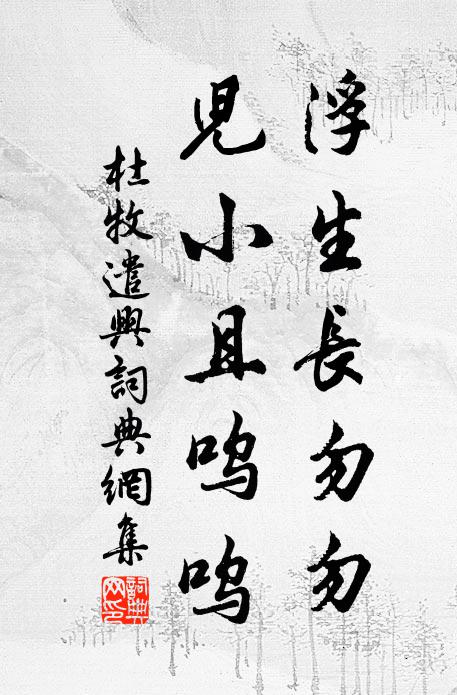 浮生長勿勿
兒小且嗚嗚
杜牧遣興詞典網集
詞典网印